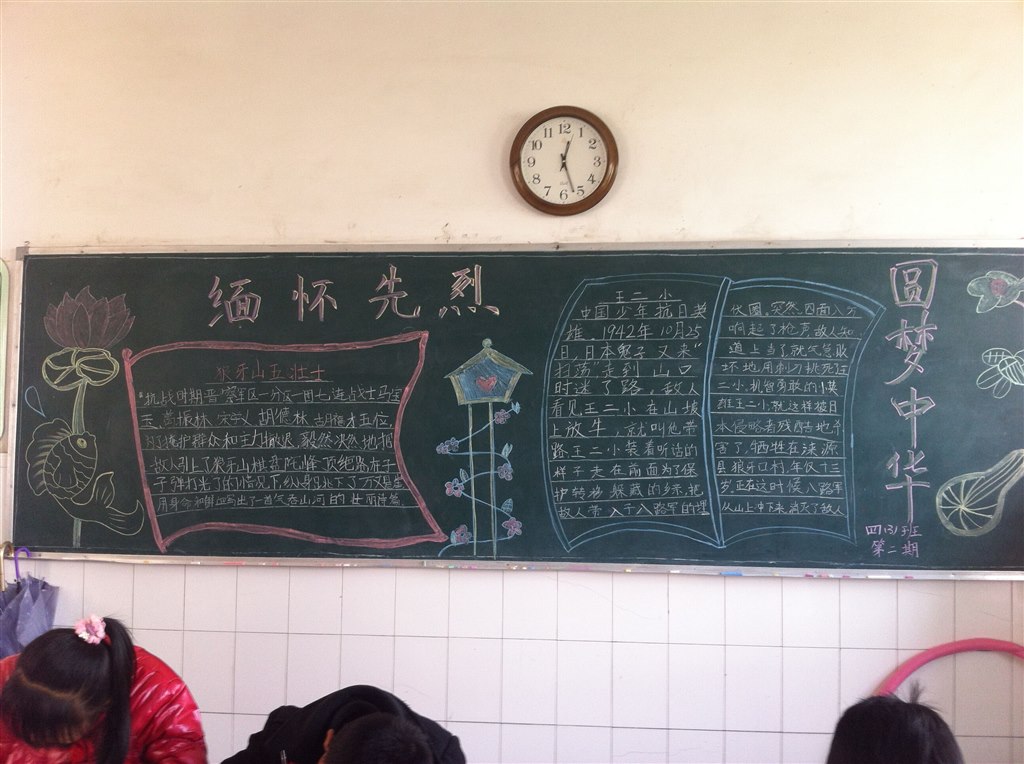 缅怀先烈
狼牙山五壮士
"抗战时期晋 察军区一分区一团七连战士马宝
玉 葛振林 宋学义 胡德林 胡福才五位,
为了掩护群众和主力撤退,毅然决然地把
敌人引上了狼牙山棋盘陀峰顶绝路,在子
子弹打光了的情况下,纵身跳下了万丈悬崖
用身命和鲜血写出了一首气吞山河的壮丽诗篇
王二小
中国少年抗日英
雄。1942年10月25
日,日本鬼子又来"
扫荡"走到山口
时迷了路。敌人
看见王二小在山坡
上放牛,就叫他带
路王二小装着听话的
样子走在前面为了保
护转移躲藏的乡亲,把
敌人带入了八路军的埋
伏圈。突然,四面八方
响起了枪声敌人知
道上当了就气急败
坏地用刺刀挑死了王
二小,机智勇敢的小英
雄王二小就这样被日
本侵略者残酷地杀
害了,牺牲在涞源
县狼牙口村,年仅十三
岁,正在这时候八路军
从山上冲下来,消灭了敌人
圆梦中华
四(3)班
第二期
11 12 1
10 2
9 3
8 4
7 6 5